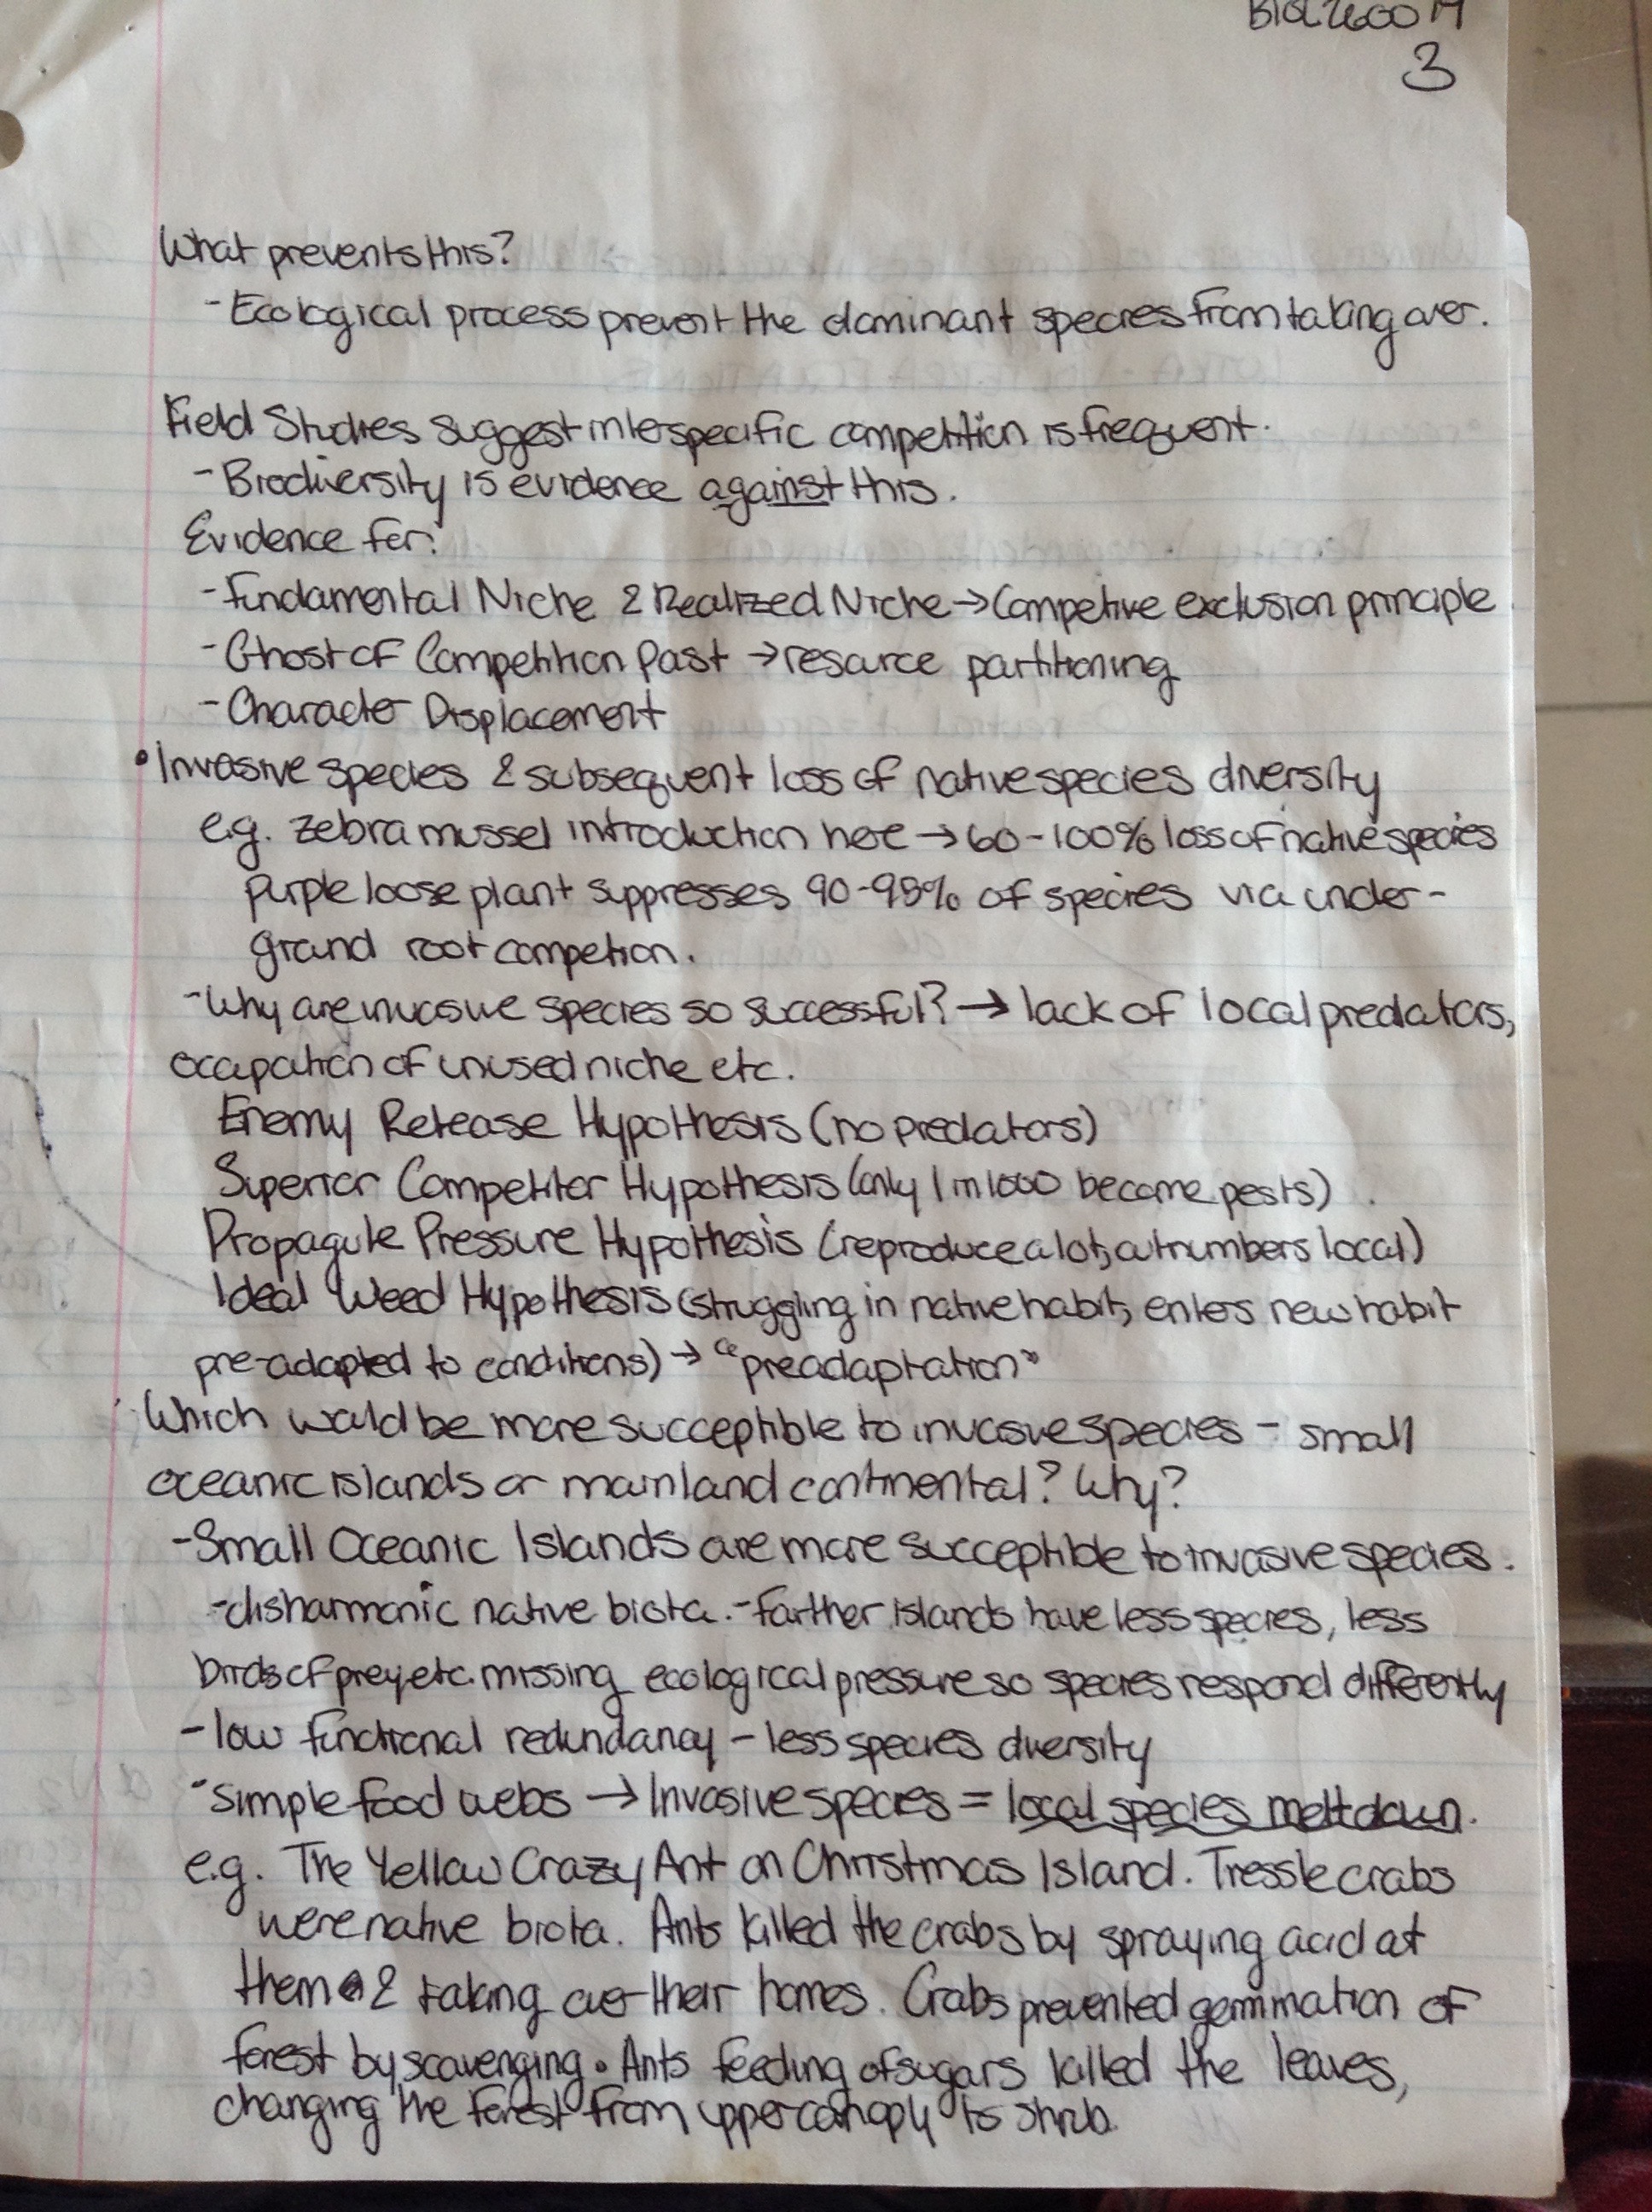 BIOL2600 M
3
What prevents this?
- Ecological process prevent the dominant species from taking over.
Field Studies suggest interspecific competition is frequent.
- Biodiversity is evidence against this.
Evidence for:
- Fundamental Niche & Realized Niche → Competive exclusion principle
- Ghost of Competition Past → resource partitioning
- Character Displacement
• Invasive species & subsequent loss of native species diversity
e.g. zebra mussel introduction here → 60-100% loss of native species
purple loose plant suppresses 90-95% of species via under-
ground root competion.
- Why are invasive species so successful? → lack of local predators,
occupation of unused niche etc.
Enemy Release Hypothesis (no predators)
Superior Competitor Hypothesis (only 1 in 1000 become pests)
Propagule Pressure Hypothesis (reproduce a lot, outnumbers local)
Ideal Weed Hypothesis (struggling in native habit, enters new habit
pre-adapted to conditions) → "preadaptation"
Which would be more succeptible to invasive species - small
oceanic islands or mainland continental? Why?
- Small Oceanic Islands are more succeptible to invasive species.
- disharmonic native biota. - Farther islands have less species, less
birds of prey, etc. missing ecological pressure so species respond differently
- low functional redundancy - less species diversity
- simple food webs → Invasive species = local species meltdown.
e.g. The Yellow Crazy Ant on Christmas Island. Tressle crabs
were native biota. Ants killed the crabs by spraying acid at
them & taking over their homes. Crabs prevented germination of
forest by scavenging. Ants feeding of sugars killed the leaves,
changing the forest from upper canopy to shrub.